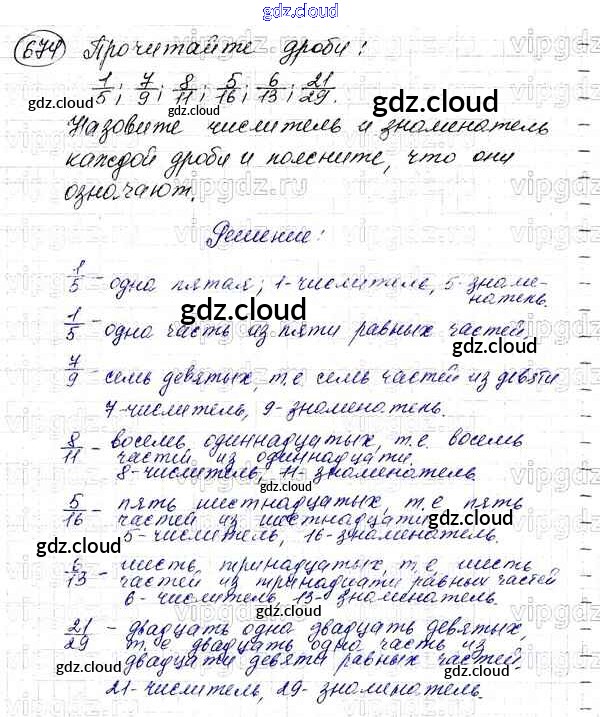 gdz.cloud
674 Прочитайте дроби:
1/5; 7/9; 8/11; 5/16; 6/13; 21/29.
Назовите числитель и знаменатель
каждой дроби и поясните, что они
означают.
Решение:
1/5 - одна пятая; 1-числитель, 5-знаме-
натель.
1/5 - одна часть из пяти равных частей.
7/9 - семь девятых, т.е. семь частей из девяти
7-числитель, 9-знаменатель.
8/11 - восемь одиннадцатых, т.е. восемь
частей из одиннадцати.
8-числитель, 11-знаменатель.
5/16 - пять шестнадцатых, т.е. пять
частей из шестнадцати
5-числитель, 16-знаменатель.
6/13 - шесть тринадцатых, т.е. шесть
частей из тринадцати равных частей
6-числитель, 13-знаменатель.
21/29 - двадцать одна двадцать девятых,
т.е. двадцать одна часть из
двадцати девяти равных частей.
21-числитель, 29-знаменатель.
gdz.cloud
vipgdz.ru